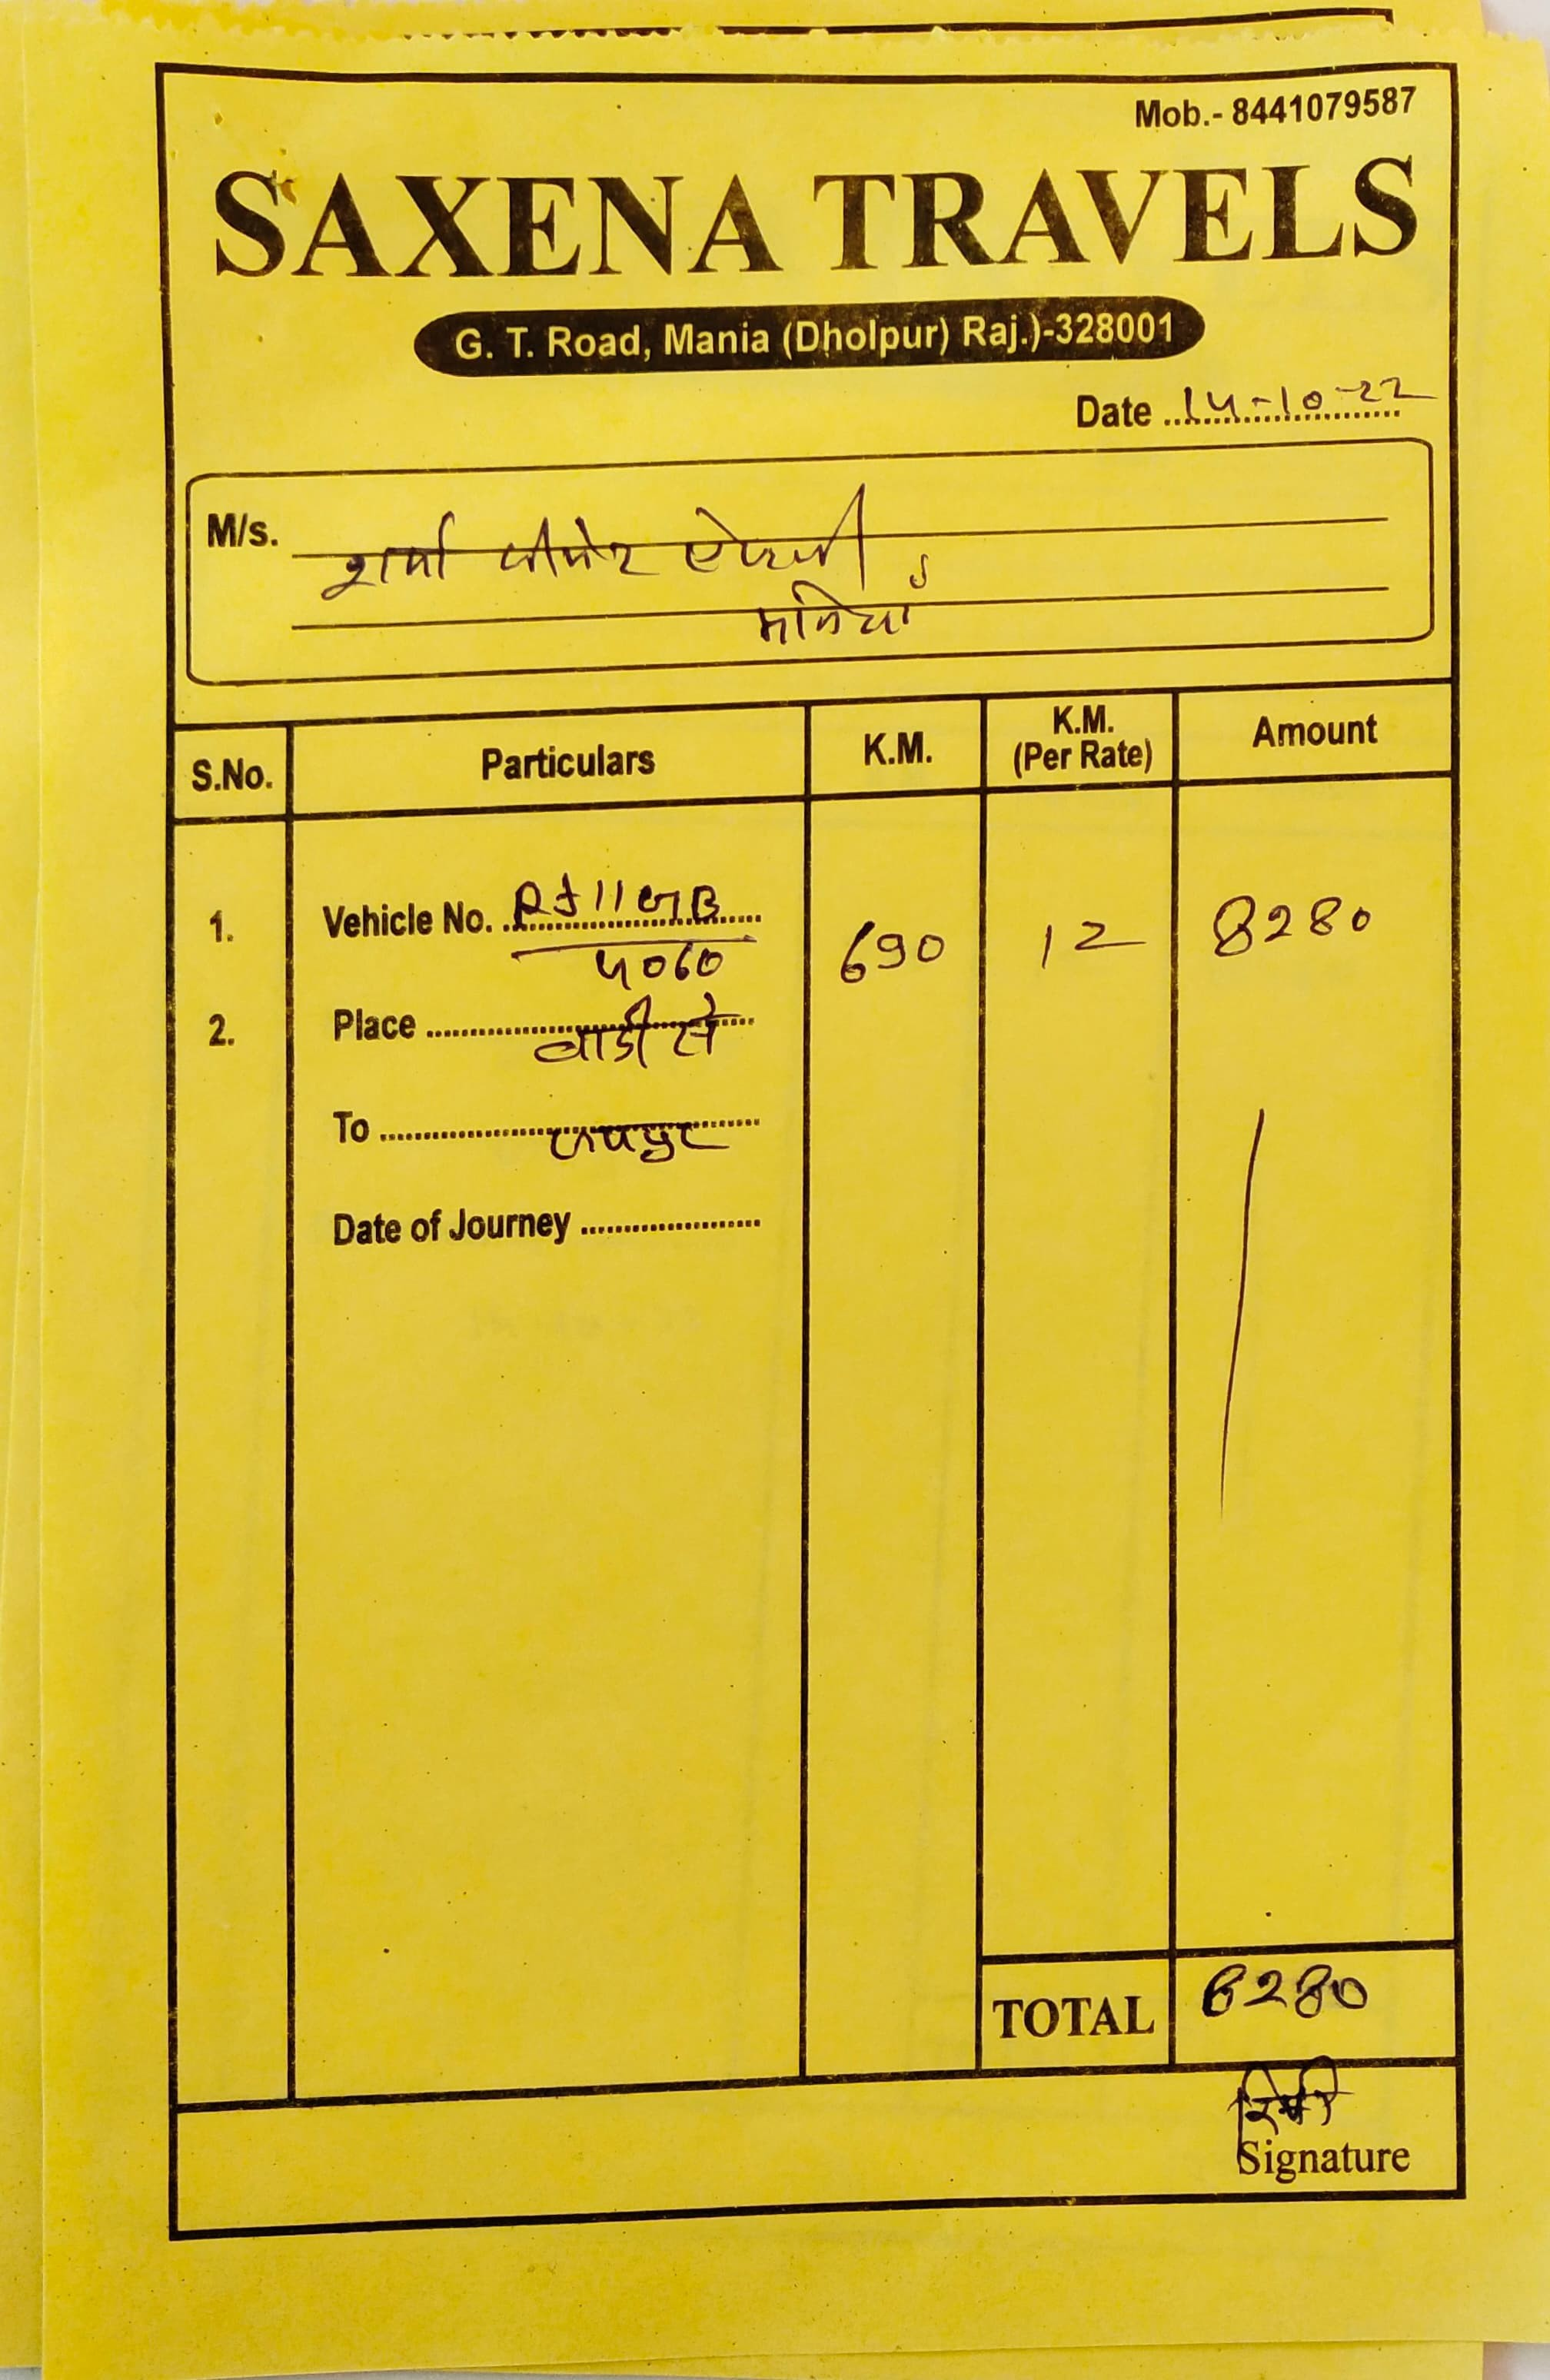 Mob.- 8441079587
SAXENA TRAVELS
G. T. Road, Mania (Dholpur) Raj.)-328001
Date 14-10-22
M/s. शर्मा
मनियां
S.No. Particulars K.M. K.M. (Per Rate) Amount
1. Vehicle No. RJ11GB 690 12 8280
4060
2. Place बाडी से
To जयपुर
Date of Journey
TOTAL 8280
Signature